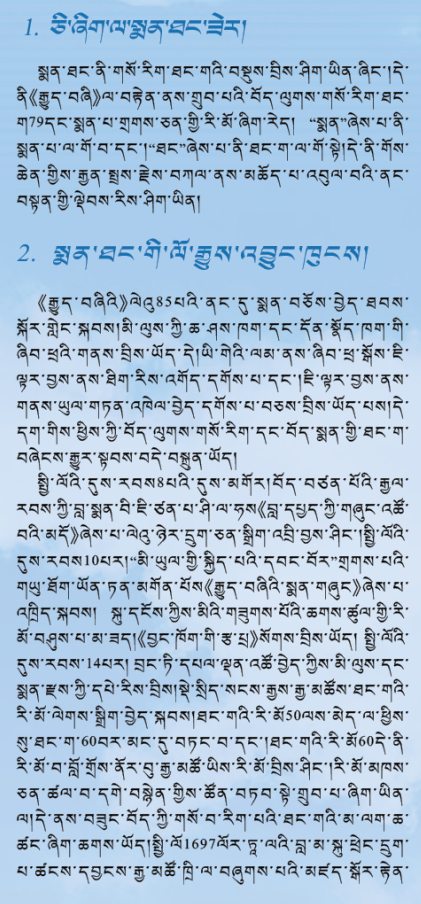 1. ཅི་ཞིག་ལ་སྨན་ཐང་ཟེར།
སྨན་ཐང་ནི་གསོ་རིག་ཐང་གའི་བསྡུས་བྲིས་ཤིག་ཡིན་ཞིང་།དེ་
ནི《རྒྱུད་བཞི》ལ་བརྟེན་ནས་གྲུབ་པའི་བོད་ལུགས་གསོ་རིག་ཐང་
ག79དང་སྨན་པ་གྲགས་ཅན་གྱི་རི་མོ་ཞིག་རེད། “སྨན”ཞེས་པ་ནི་
སྨན་པ་ལ་གོ་བ་དང་།“ཐང”ཞེས་པ་ནི་ཐང་ག་ལ་གོ་སྟེ།དེ་ནི་གོས་
ཆེན་གྱིས་རྒྱན་སྤྲས་རྗེས་བཀལ་ནས་མཆོད་པ་འབུལ་བའི་ནང་
བསྟན་གྱི་ལྡེབས་རིས་ཤིག་ཡིན།
2. སྨན་ཐང་གི་ལོ་རྒྱུས་འབྱུང་ཁུངས།
《རྒྱུད་བཞིའི》ལེའུ85པའི་ནང་དུ་སྨན་བཅོས་བྱེད་ཐབས་
སྐོར་གླེང་སྐབས།མི་ལུས་ཀྱི་ཆ་ཤས་ཁག་དང་དོན་སྣོད་ཁག་གི་
ཞིབ་ཕྲའི་གནས་བྲིས་ཡོད་དེ།ཡི་གེའི་ལམ་ནས་ཞིབ་ཕྲ་སྒོས་ཇི་
ལྟར་བྱས་ནས་ཐིག་རིས་འགོད་དགོས་པ་དང་།ཇི་ལྟར་བྱས་ནས་
གནས་ཡུལ་གཏན་འཁེལ་བྱེད་དགོས་པ་བཅས་བྲིས་ཡོད་པས།དེ་
དག་གིས་ཕྱིས་ཀྱི་བོད་ལུགས་གསོ་རིག་དང་བོད་སྨན་གྱི་ཐང་ག་
བཞེངས་རྒྱུར་སྟབས་བདེ་བསྐྲུན་ཡོད།
སྤྱི་ལོའི་དུས་རབས8པའི་དུས་མགོར།བོད་བཙན་པོའི་རྒྱལ་
རབས་ཀྱི་བླ་སྨན་བི་ཇི་ཙན་པ་ཤི་ལ་ཧས《བླ་དཔྱད་ཀྱི་གཞུང་འཚོ་
བའི་མདོ》ཞེས་པ་ལེའུ་ཉེར་དྲུག་ཅན་སྒྲིག་འབྲི་བྱས་ཤིང་།སྤྱི་ལོའི་
དུས་རབས10པར།“མི་ཡུལ་གྱི་སྐྱིད་པའི་དབང་བོར”གྲགས་པའི་
གཡུ་ཐོག་ཡོན་ཏན་མགོན་པོས《རྒྱུད་བཞིའི་སྨན་གཞུང》ཞེས་པ་
འཁྲིད་སྐབས། སྐུ་དངོས་ཀྱིས་མིའི་གཟུགས་པོའི་ཆགས་ཚུལ་གྱི་རི་
མོ་བཤུས་པ་མ་ཟད།《བྱང་ཁོག་གི་རྩ་པྲ》སོགས་བྲིས་ཡོད། སྤྱི་ལོའི་
དུས་རབས་14པར། བྲང་ཏི་དཔལ་ལྡན་འཚོ་བྱེད་ཀྱིས་མི་ལུས་དང་
སྨན་རྫས་ཀྱི་དཔེ་རིས་བྲིས།སྡེ་སྲིད་སངས་རྒྱས་རྒྱ་མཚོས་ཐང་གའི་
རི་མོ་ལེགས་སྒྲིག་བྱེད་སྐབས།ཐང་གའི་རི་མོ50ལས་མེད་ལ་ཕྱིས་
སུ་ཐང་ག་60བར་མང་དུ་བཏང་བ་དང་།ཐང་གའི་རི་མོ60དེ་ནི་
རི་མོ་བ་བློ་གྲོས་ནོར་བུ་རྒྱ་མཚོ་ཡིས་རི་མོ་བྲིས་ཤིང་།རི་མོ་མཁས་
ཅན་ཚལ་བ་དགེ་བསྙེན་གྱིས་ཚོན་བཏབ་སྟེ་གྲུབ་པ་ཞིག་ཡིན་
ལ།དེ་ནས་བཟུང་བོད་ཀྱི་གསོ་བ་རིག་པའི་ཐང་གའི་མ་ལག་ཆ་
ཚང་ཞིག་ཆགས་ཡོད།སྤྱི་ལོ1697ལོར་ཏཱ་ལའི་བླ་མ་སྐུ་ཕྲེང་དྲུག་
པ་ཚངས་དབྱངས་རྒྱ་མཚོ་ཁྲི་ལ་བཞུགས་པའི་མཛད་སྒོར་རྟེན་